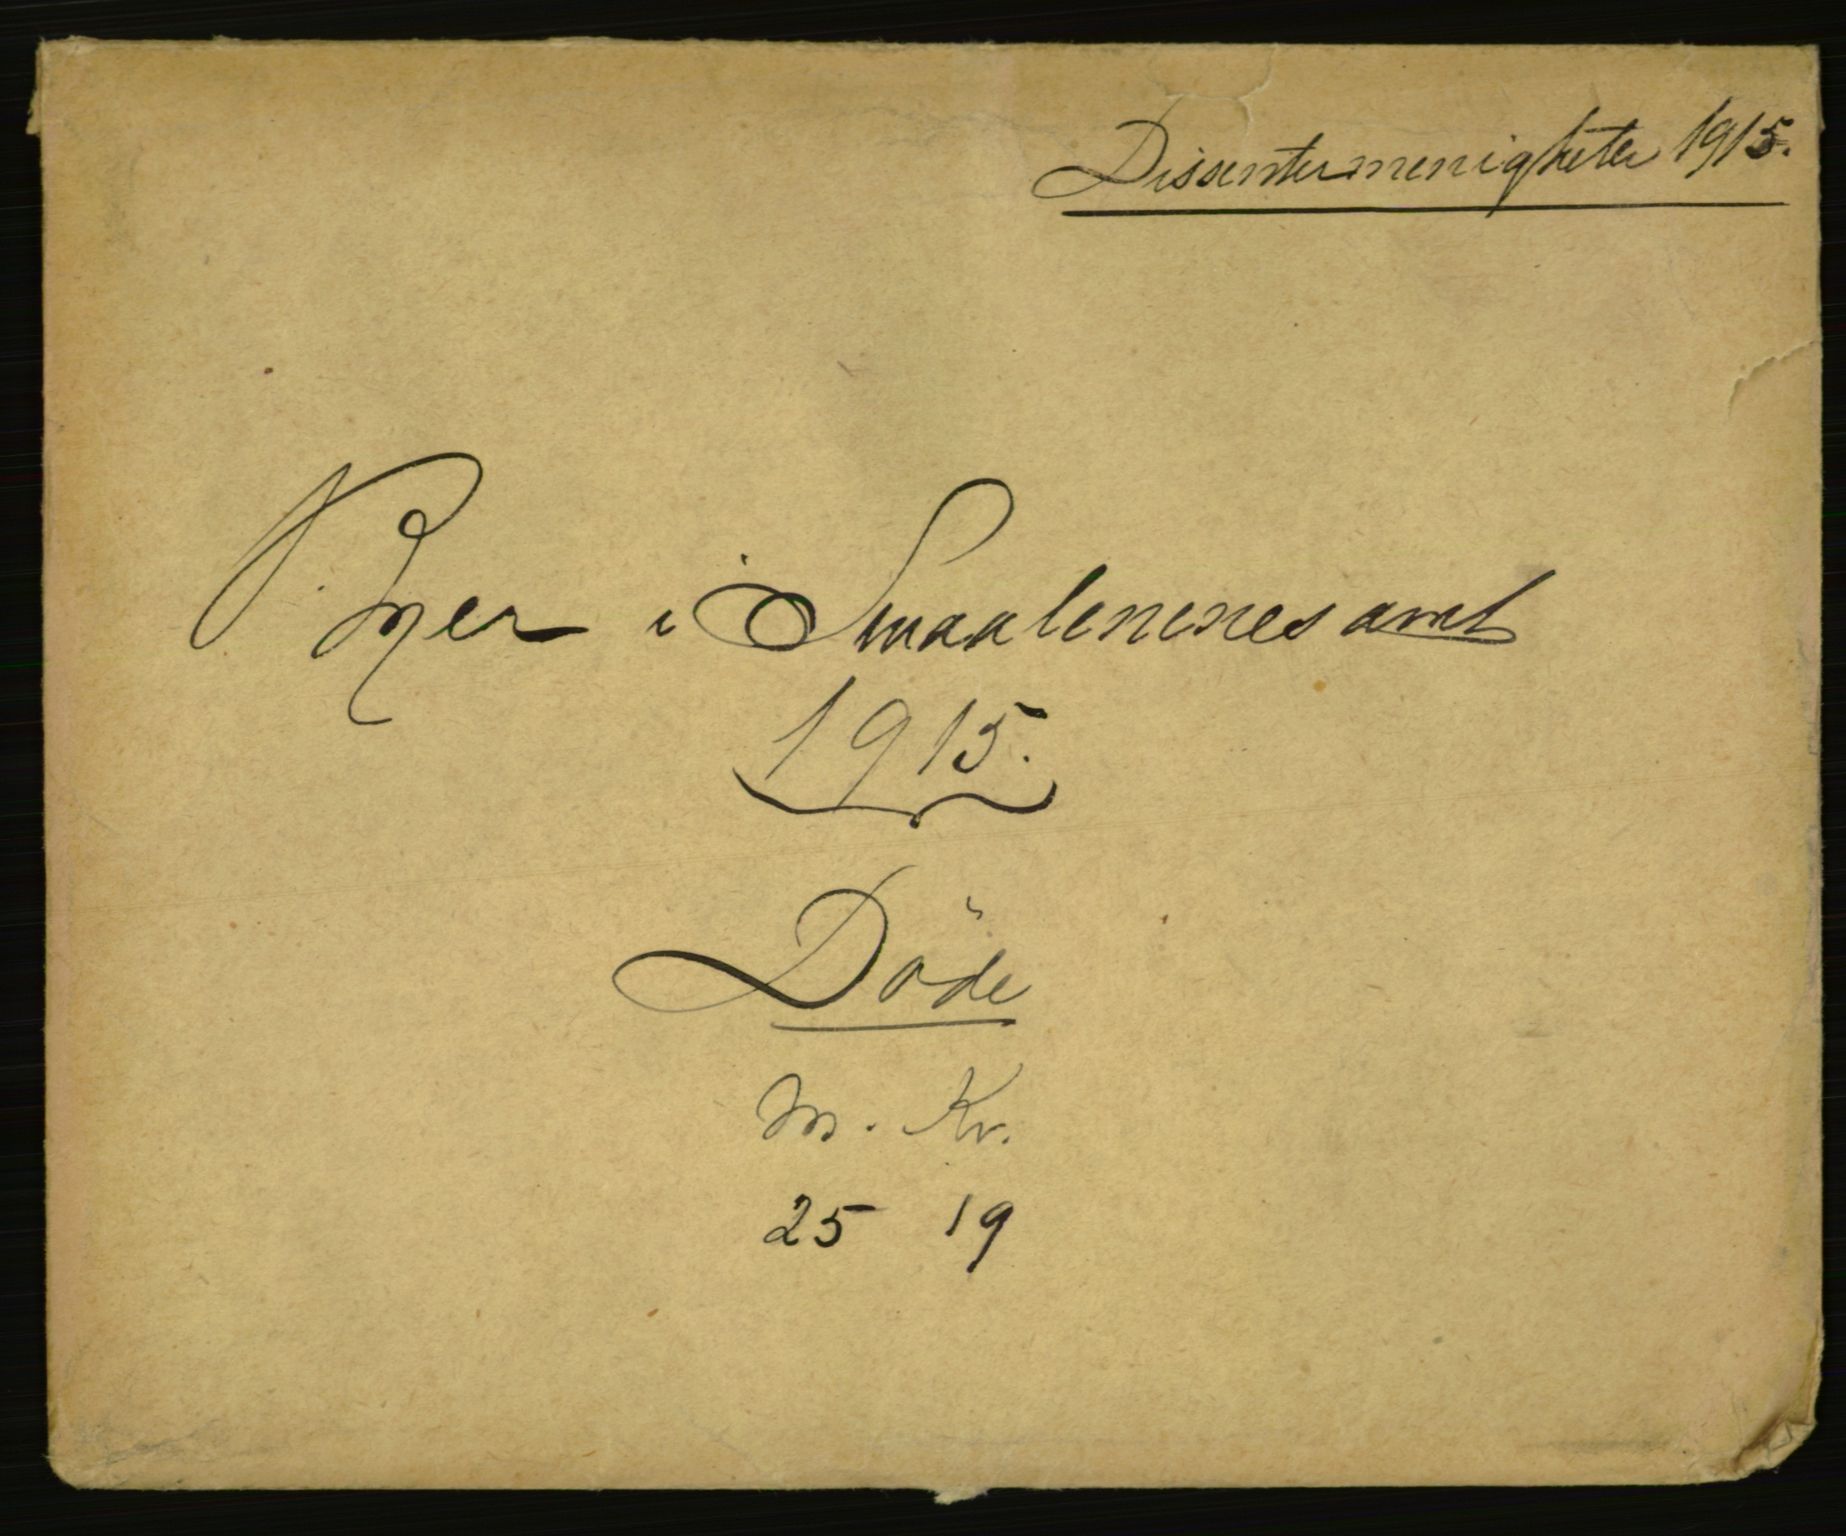 Dissentermenigheter 1915.
Byer i Smaalenenes amt
1915.
Döde
M. Kv.
25 19